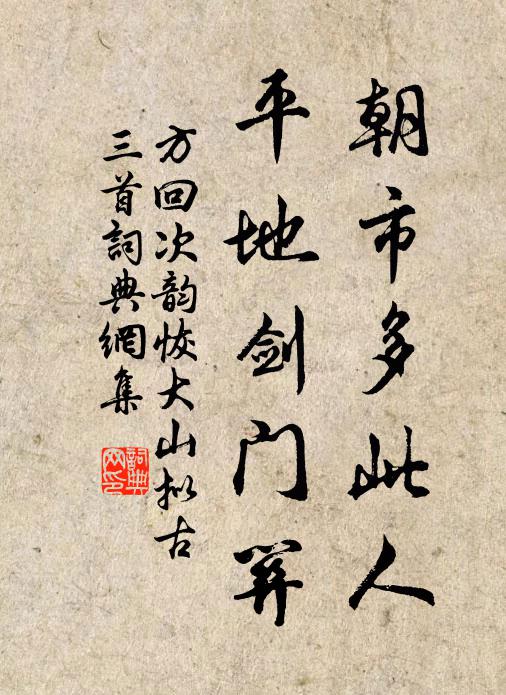 朝市多此人
平地剑门
方回次韵恢大山拟古
三首詞典網集
詞典网印